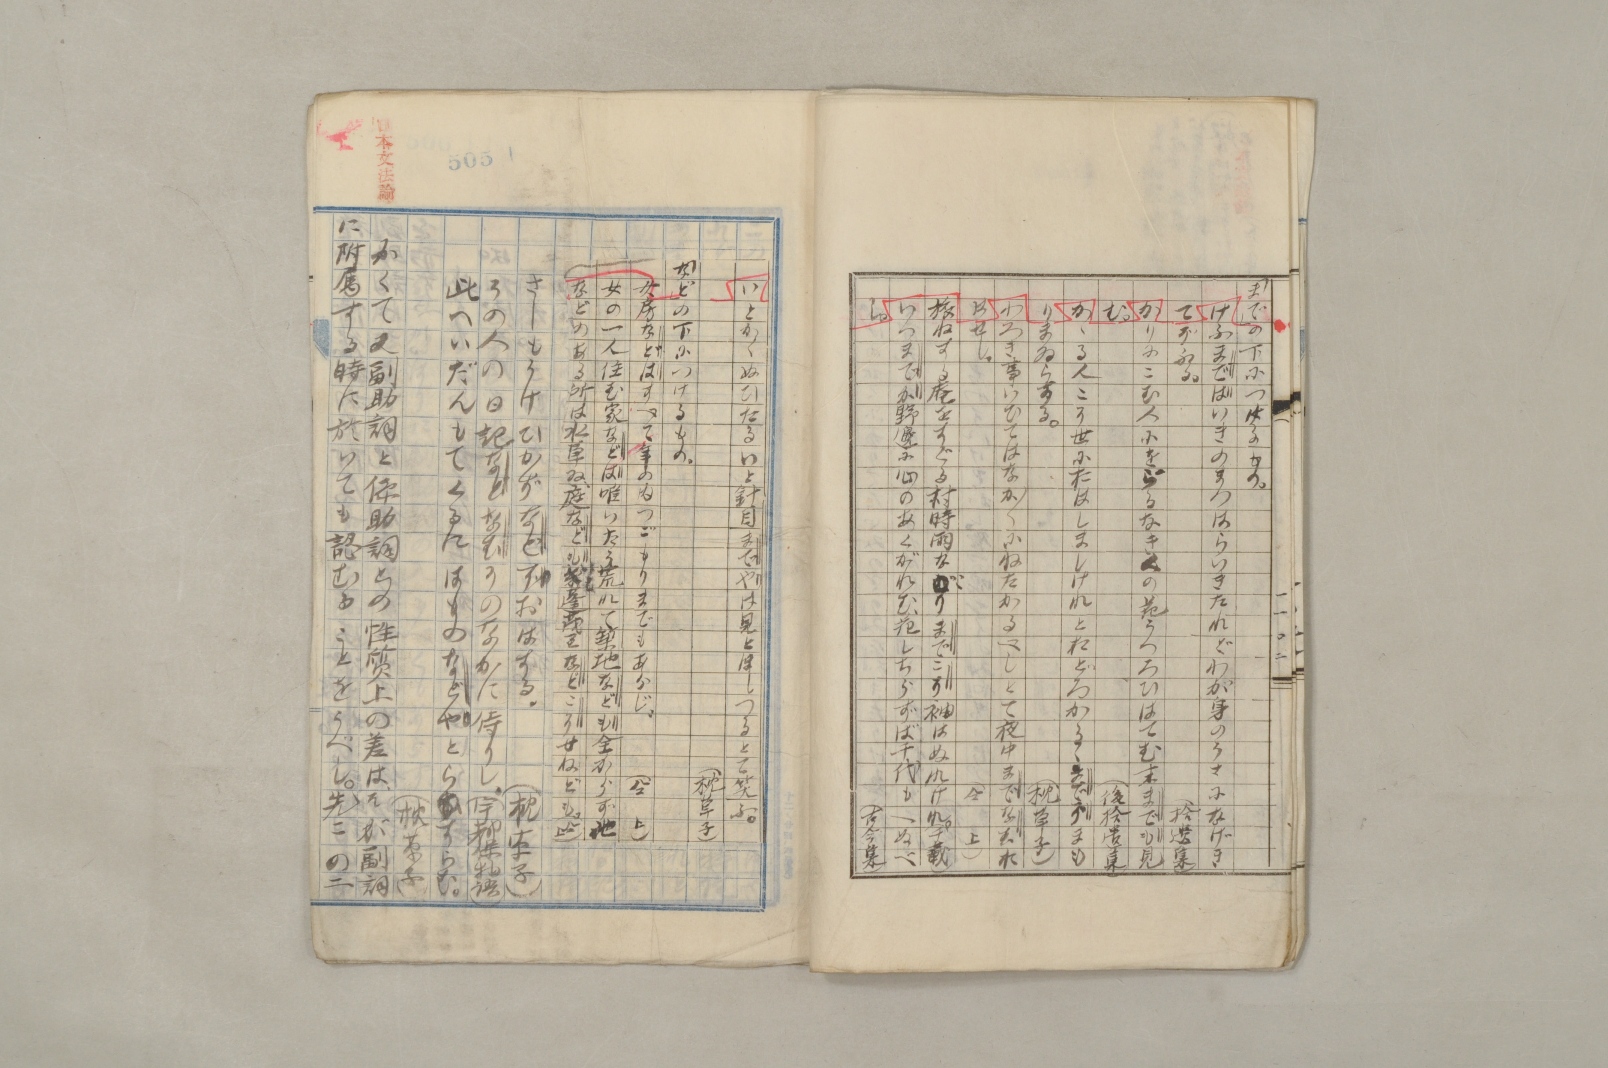 までの下につけるもの。
けふまではいきのまつはらいきたれどわが身のうさになげき
てぞふる。
(拾遺集)
かりにこむ人にをらるなキ人の花うつろひはてむ末までも見
む。
(後拾遺集)
かゝる人こそ世におはしましけれとおどろかるゝまでぞまも
りまゐらする。
(枕草子)
わろき事いひてはなかくにねたかるべしとて夜中までなむお
はせし。
(仝上)
旅ねする庵をすぐる村時雨なごりまでこそ袖はぬれけれ。
(千載)
いつまでか野辺に心のあくがれむ花しちらずば千代もへぬべ
し。
(古今集)
いとかくぬひたるいと針目までやは見とほしつるとて笑ふ。
(枕草子)
などの下につけるもの。
女房などはすべて年のもつごもりまでもあらじ。
(仝上)
女の一人住む家などは唯いたう荒れて築地なども全からず池
などのある所は水草ゐ庭などもなどこそせねども。
(仝上)
さしもうけひかずなどぞおはする。
(枕草子)
その人の日記などなむそのなかに侍りし。
(宇津保物語)
此へいだんもてくるにはものなどやとらすらむ。
(枕草子)
かくて又副助詞と係助詞との性質上の差はそが副詞
に附属する時に於いても認むることをうべし。先この二
日本文法論
505